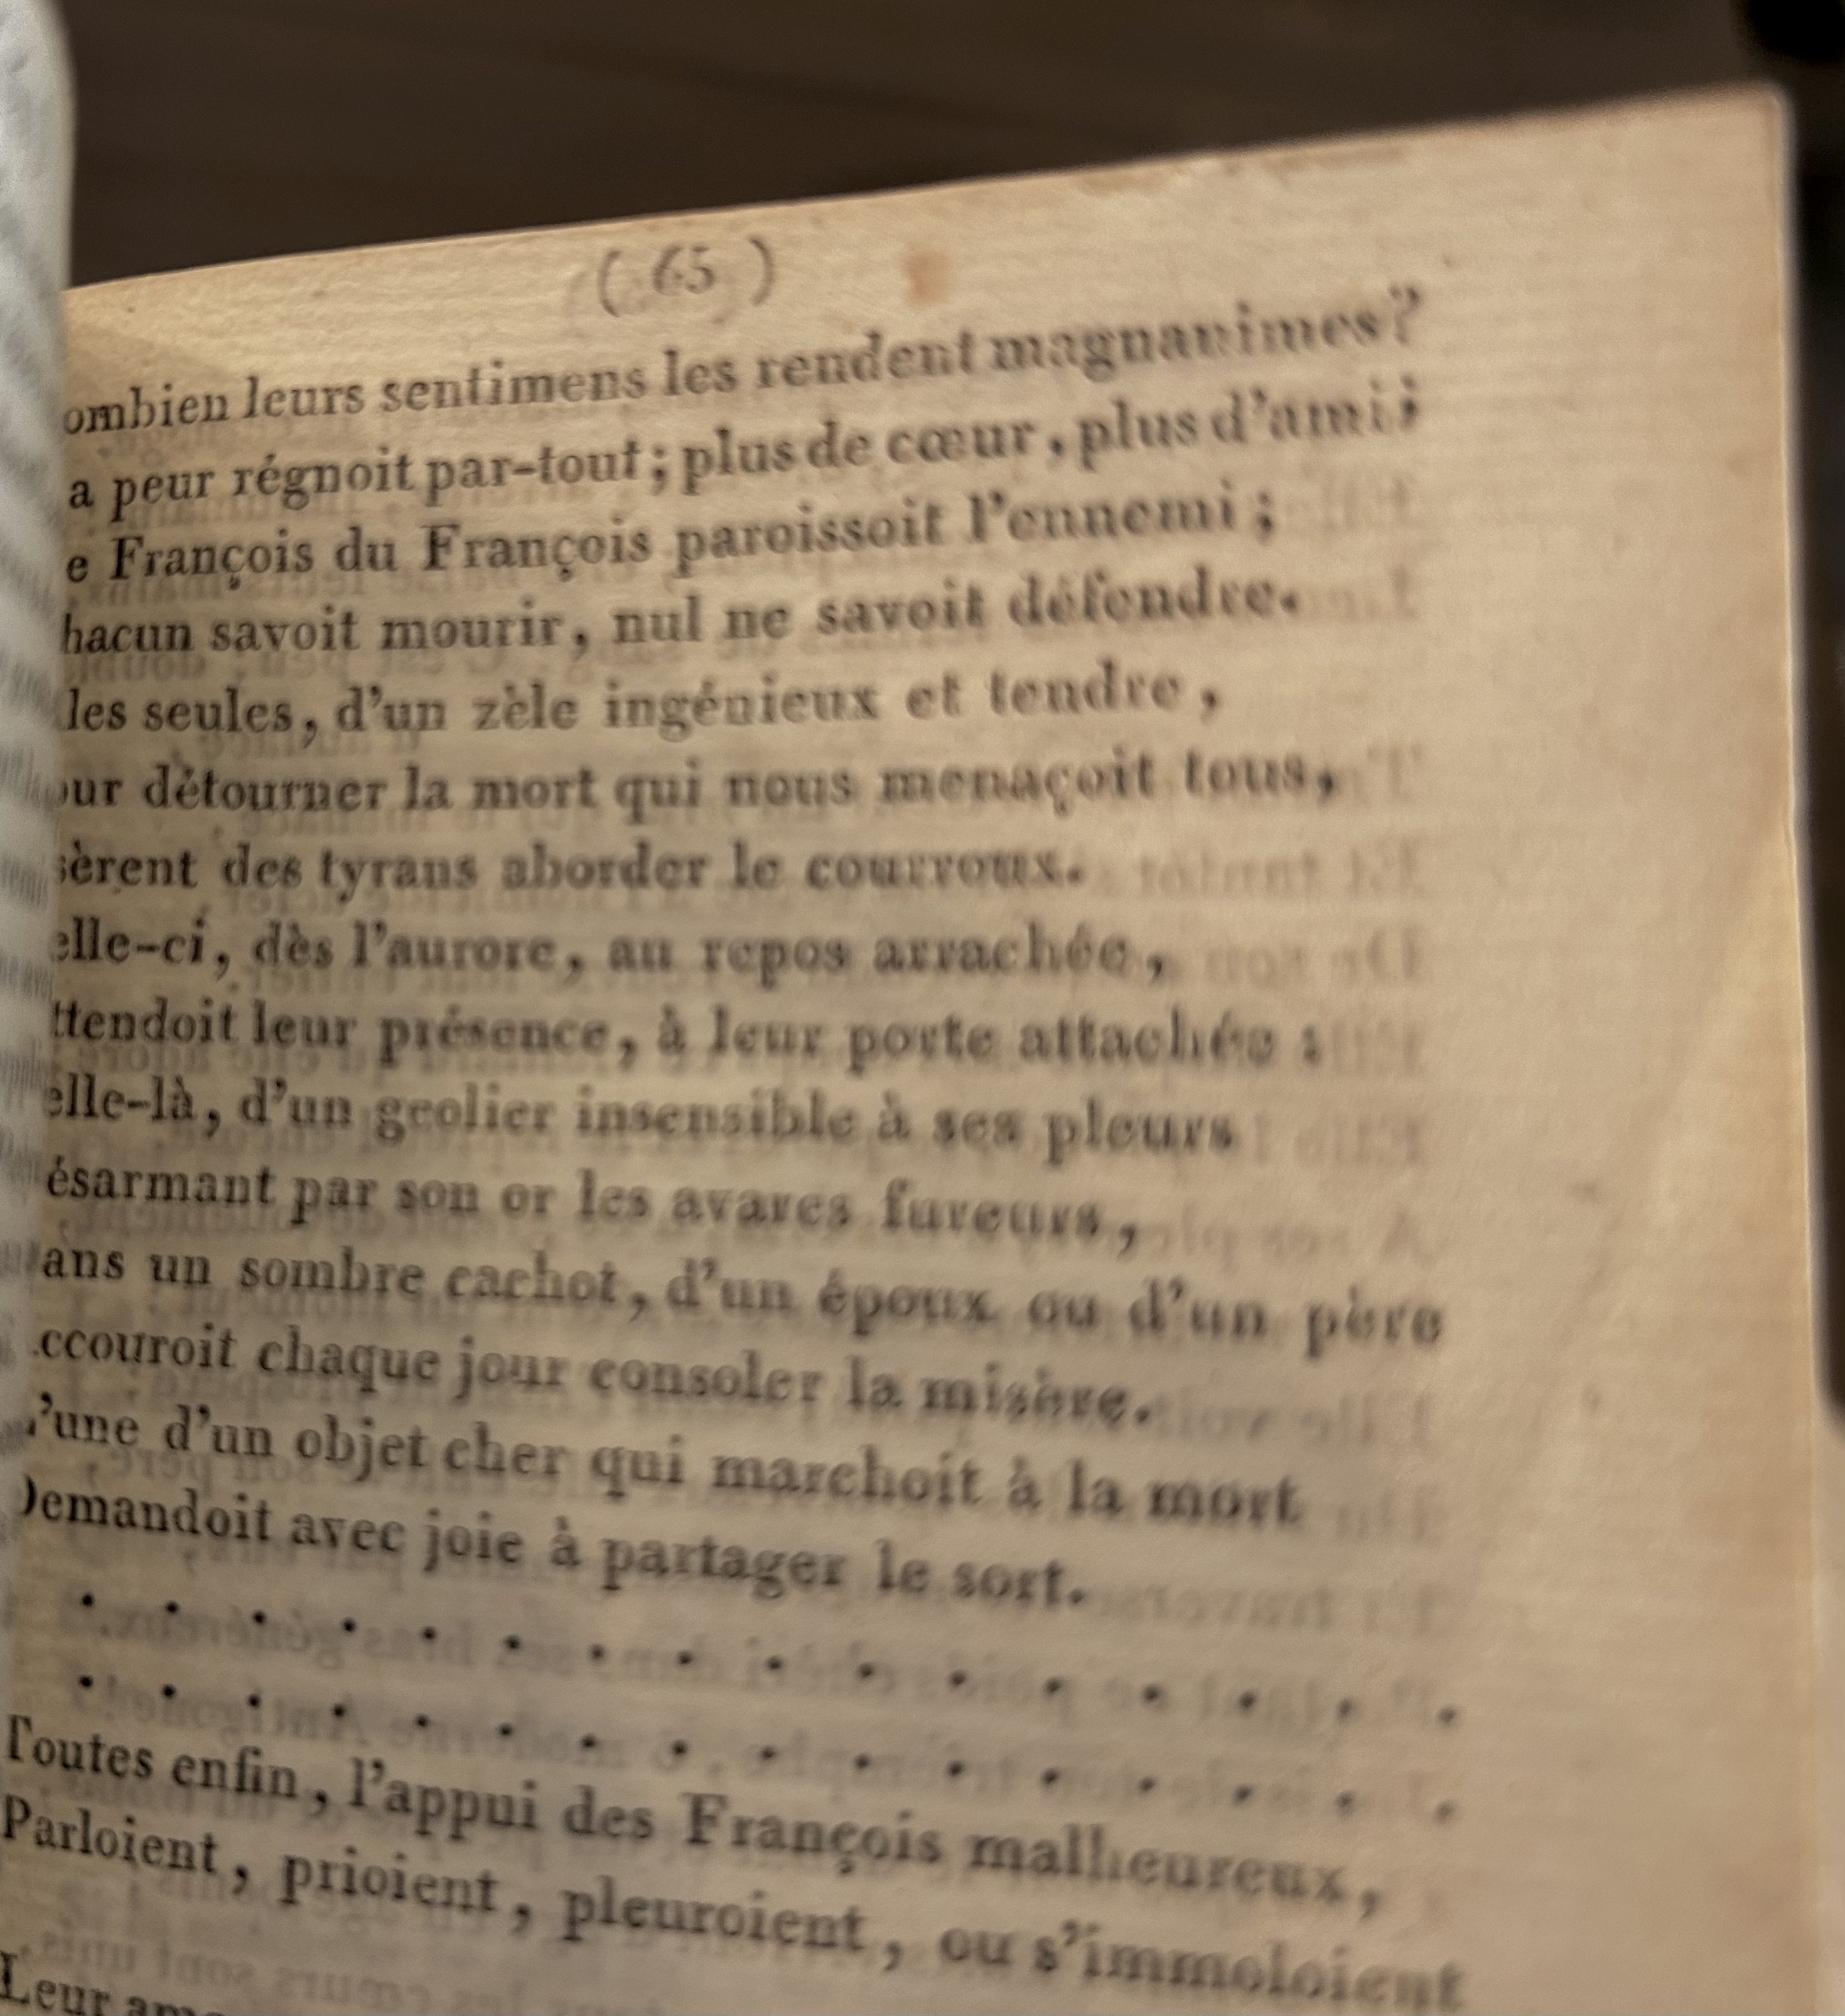 ( 65 )
ombien leurs sentimens les rendent magnanimes?
a peur régnoit par-tout; plus de cœur, plus d'ami;
e François du François paroissoit l'ennemi;
hacun savoit mourir, nul ne savoit défendre.
les seules, d'un zèle ingénieux et tendre,
our détourner la mort qui nous menaçoit tous,
sèrent des tyrans aborder le courroux.
elle-ci, dès l'aurore, au repos arrachée,
ttendoit leur présence, à leur porte attachée:
elle-là, d'un geolier insensible à ses pleurs
ésarmant par son or les avares fureurs,
ans un sombre cachot, d'un époux ou d'un père
ccouroit chaque jour consoler la misère.
'une d'un objet cher qui marchoit à la mort
Demandoit avec joie à partager le sort.
. . . . . . . . . . . . . . . .
. . . . . . . . . . . . . . . .
Toutes enfin, l'appui des François malheureux,
Parloient, prioient, pleuroient, ou s'immoloient
Leur